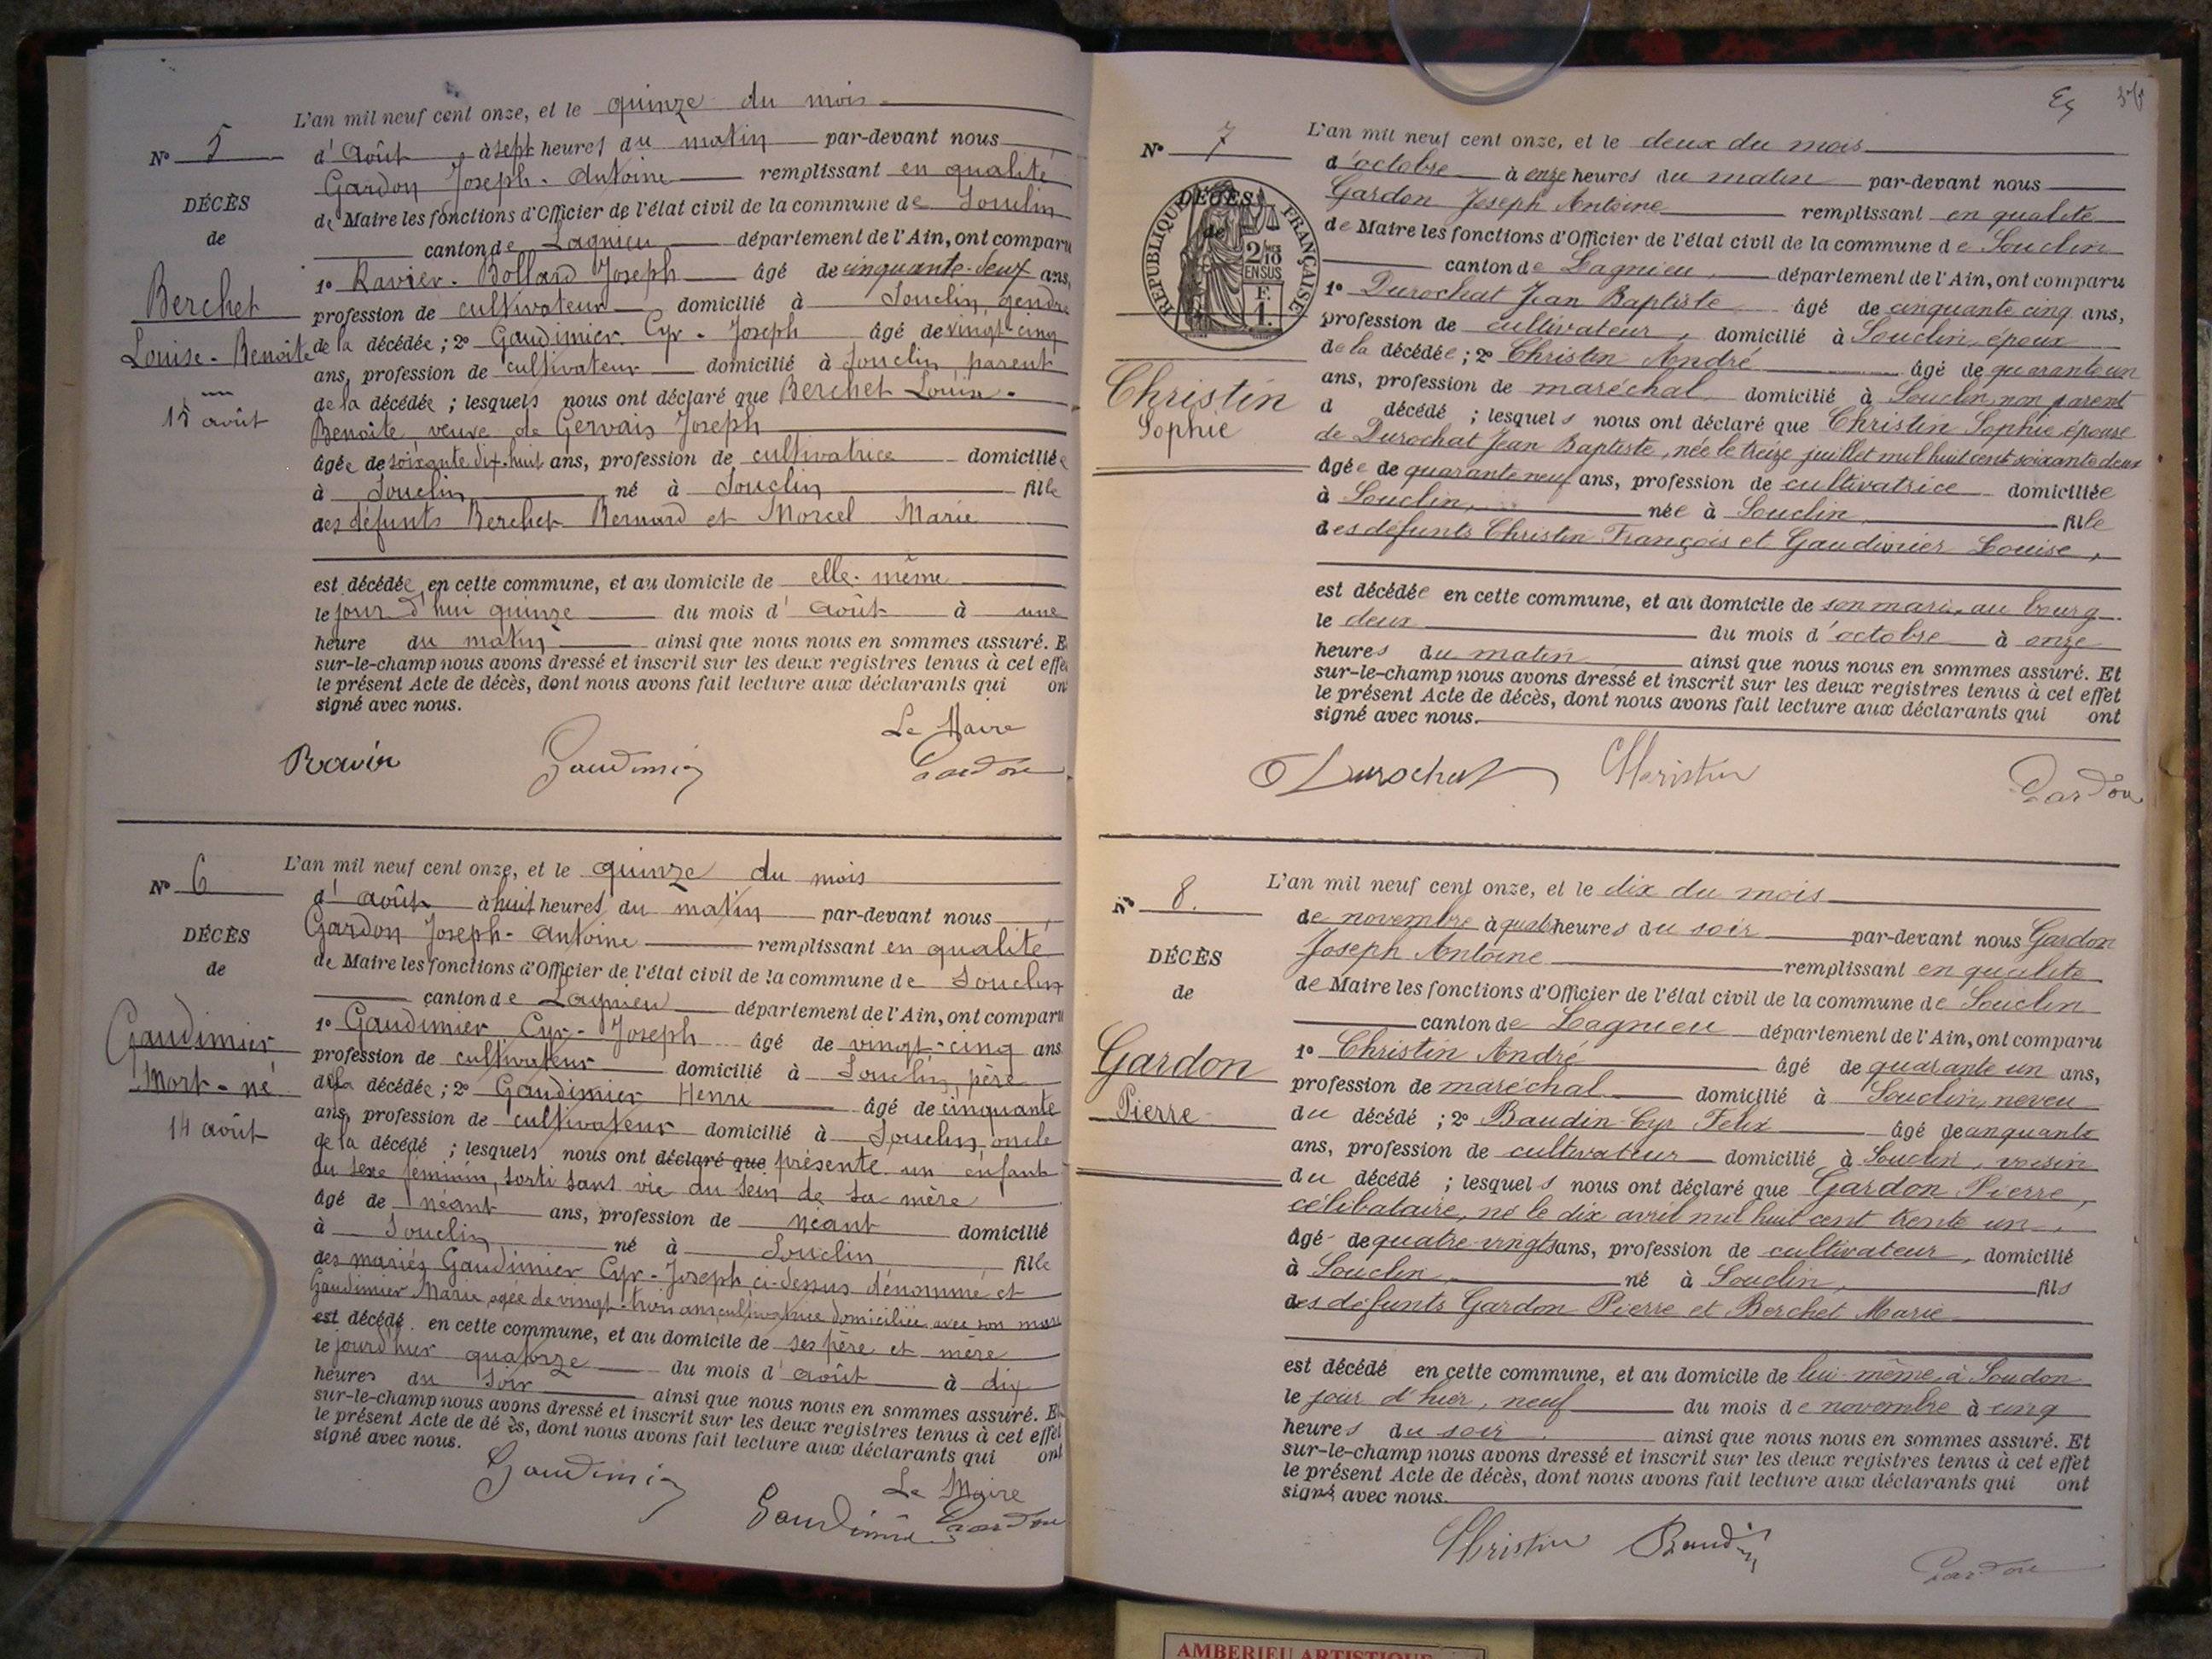 L'an mil neuf cent onze, et le quinze du mois
N° 5
d'Août, à sept heures du matin par-devant nous
Gardon Joseph-Antoine remplissant en qualité
DÉCÈS
de Maire les fonctions d'Officier de l'état civil de la commune de Souclin
de
canton de Lagnieu département de l'Ain, ont comparu
1° Ravier-Bolland Joseph âgé de cinquante-deux ans,
Berchet
profession de cultivateur domicilié à Souclin, gendre
Louise-Benoite
de la décédée ; 2° Gaudimier Cyr-Joseph âgé de vingt cinq
ans, profession de cultivateur domicilié à Souclin, parent
15 août
de la décédée ; lesquels nous ont déclaré que Berchet Louise-
Benoite, veuve de Gervais Joseph
âgée de soixante-dix-huit ans, profession de cultivatrice domiciliée
à Souclin né à Souclin fille
des défunts Berchet Bernard et Morcel Marie
est décédée en cette commune, et au domicile de elle-même
le jour d'hui quinze du mois d'Août à une
heure du matin ainsi que nous nous en sommes assuré. E
sur-le-champ nous avons dressé et inscrit sur les deux registres tenus à cet effe
le présent Acte de décès, dont nous avons fait lecture aux déclarants qui on
signé avec nous.
Le Maire
Ravier Gaudimier Gardon
L'an mil neuf cent onze, et le quinze du mois
N° 6
d'août à huit heures du matin par-devant nous
Gardon Joseph-Antoine remplissant en qualité
DÉCÈS
de Maire les fonctions d'Officier de l'état civil de la commune de Souclin
de
canton de Lagnieu département de l'Ain, ont comparu
1° Gaudimier Cyr-Joseph âgé de vingt-cinq ans
Gaudimier
profession de cultivateur domicilié à Souclin, père
Mort-né
de la décédée ; 2° Gaudimier Henri âgé de cinquante
ans, profession de cultivateur domicilié à Souclin, oncle
14 août
de la décédé ; lesquels nous ont déclaré que présenté un enfant
du sexe féminin, sorti sans vie du sein de sa mère
âgé de néant ans, profession de néant domicilié
à Souclin né à Souclin fille
des mariés Gaudimier Cyr-Joseph ci-dessus dénommé et
Gaudimier Marie, agée de vingt-trois ans, cultivatrice domiciliée avec son mari
est décédé en cette commune, et au domicile de ses père et mère
le jour d'hier quatorze du mois d'août à dix
heures du soir ainsi que nous nous en sommes assuré. E
sur-le-champ nous avons dressé et inscrit sur les deux registres tenus à cet effet
le présent Acte de dé ès, dont nous avons fait lecture aux déclarants qui ont
signé avec nous.
Gaudimier
Le Maire
Gaudimier Gardon
L'an mil neuf cent onze, et le deux du mois
N° 7
d'octobre à onze heures du matin par-devant nous
Gardon Joseph Antoine remplissant en qualité
DÉCÈS
de
RÉPUBLIQUE FRANÇAISE
2/10 EN SUS
F.
1.
de Maire les fonctions d'Officier de l'état civil de la commune de Souclin
canton de Lagnieu, département de l'Ain, ont comparu
1° Durochat Jean Baptiste âgé de cinquante cinq ans,
profession de cultivateur, domicilié à Souclin, époux
de la décédée ; 2° Christin André âgé de quarante un
Christin
ans, profession de maréchal domicilié à Souclin, non parent
Sophie
d décédé ; lesquels nous ont déclaré que Christin Sophie, épouse
de Durochat Jean Baptiste, née le treize juillet mil huit cent soixante deux
âgée de quarante neuf ans, profession de cultivatrice domiciliée
à Souclin, née à Souclin, fille
des défunts Christin François et Gaudimier Louise,
est décédée en cette commune, et au domicile de son mari, au bourg
le deux du mois d'octobre à onze
heures du matin ainsi que nous nous en sommes assuré. Et
sur-le-champ nous avons dressé et inscrit sur les deux registres tenus à cet effet
le présent Acte de décès, dont nous avons fait lecture aux déclarants qui ont
signé avec nous.
Durochat Christin Gardon
L'an mil neuf cent onze, et le dix du mois
N° 8.
de novembre à quatre heures du soir par-devant nous Gardon
Joseph Antoine remplissant en qualité
DÉCÈS
de Maire les fonctions d'Officier de l'état civil de la commune de Souclin
de
canton de Lagnieu département de l'Ain, ont comparu
1° Christin André âgé de quarante un ans,
Gardon
profession de maréchal domicilié à Souclin, neveu
Pierre
du décédé ; 2° Baudin Cyr Felix âgé de cinquante
ans, profession de cultivateur domicilié à Souclin, voisin
du décédé ; lesquels nous ont déclaré que Gardon Pierre,
célibataire, né le dix avril mil huit cent trente un,
âgé de quatre-vingts ans, profession de cultivateur, domicilié
à Souclin né à Souclin, fils
des défunts Gardon Pierre et Berchet Marie
est décédé en cette commune, et au domicile de lui même, à Soudon
le jour d'hier, neuf du mois de novembre à cinq
heures du soir ainsi que nous nous en sommes assuré. Et
sur-le-champ nous avons dressé et inscrit sur les deux registres tenus à cet effet
le présent Acte de décès, dont nous avons fait lecture aux déclarants qui ont
signé avec nous.
Christin Baudin Gardon
AMBERIEU ARTISTIQUE